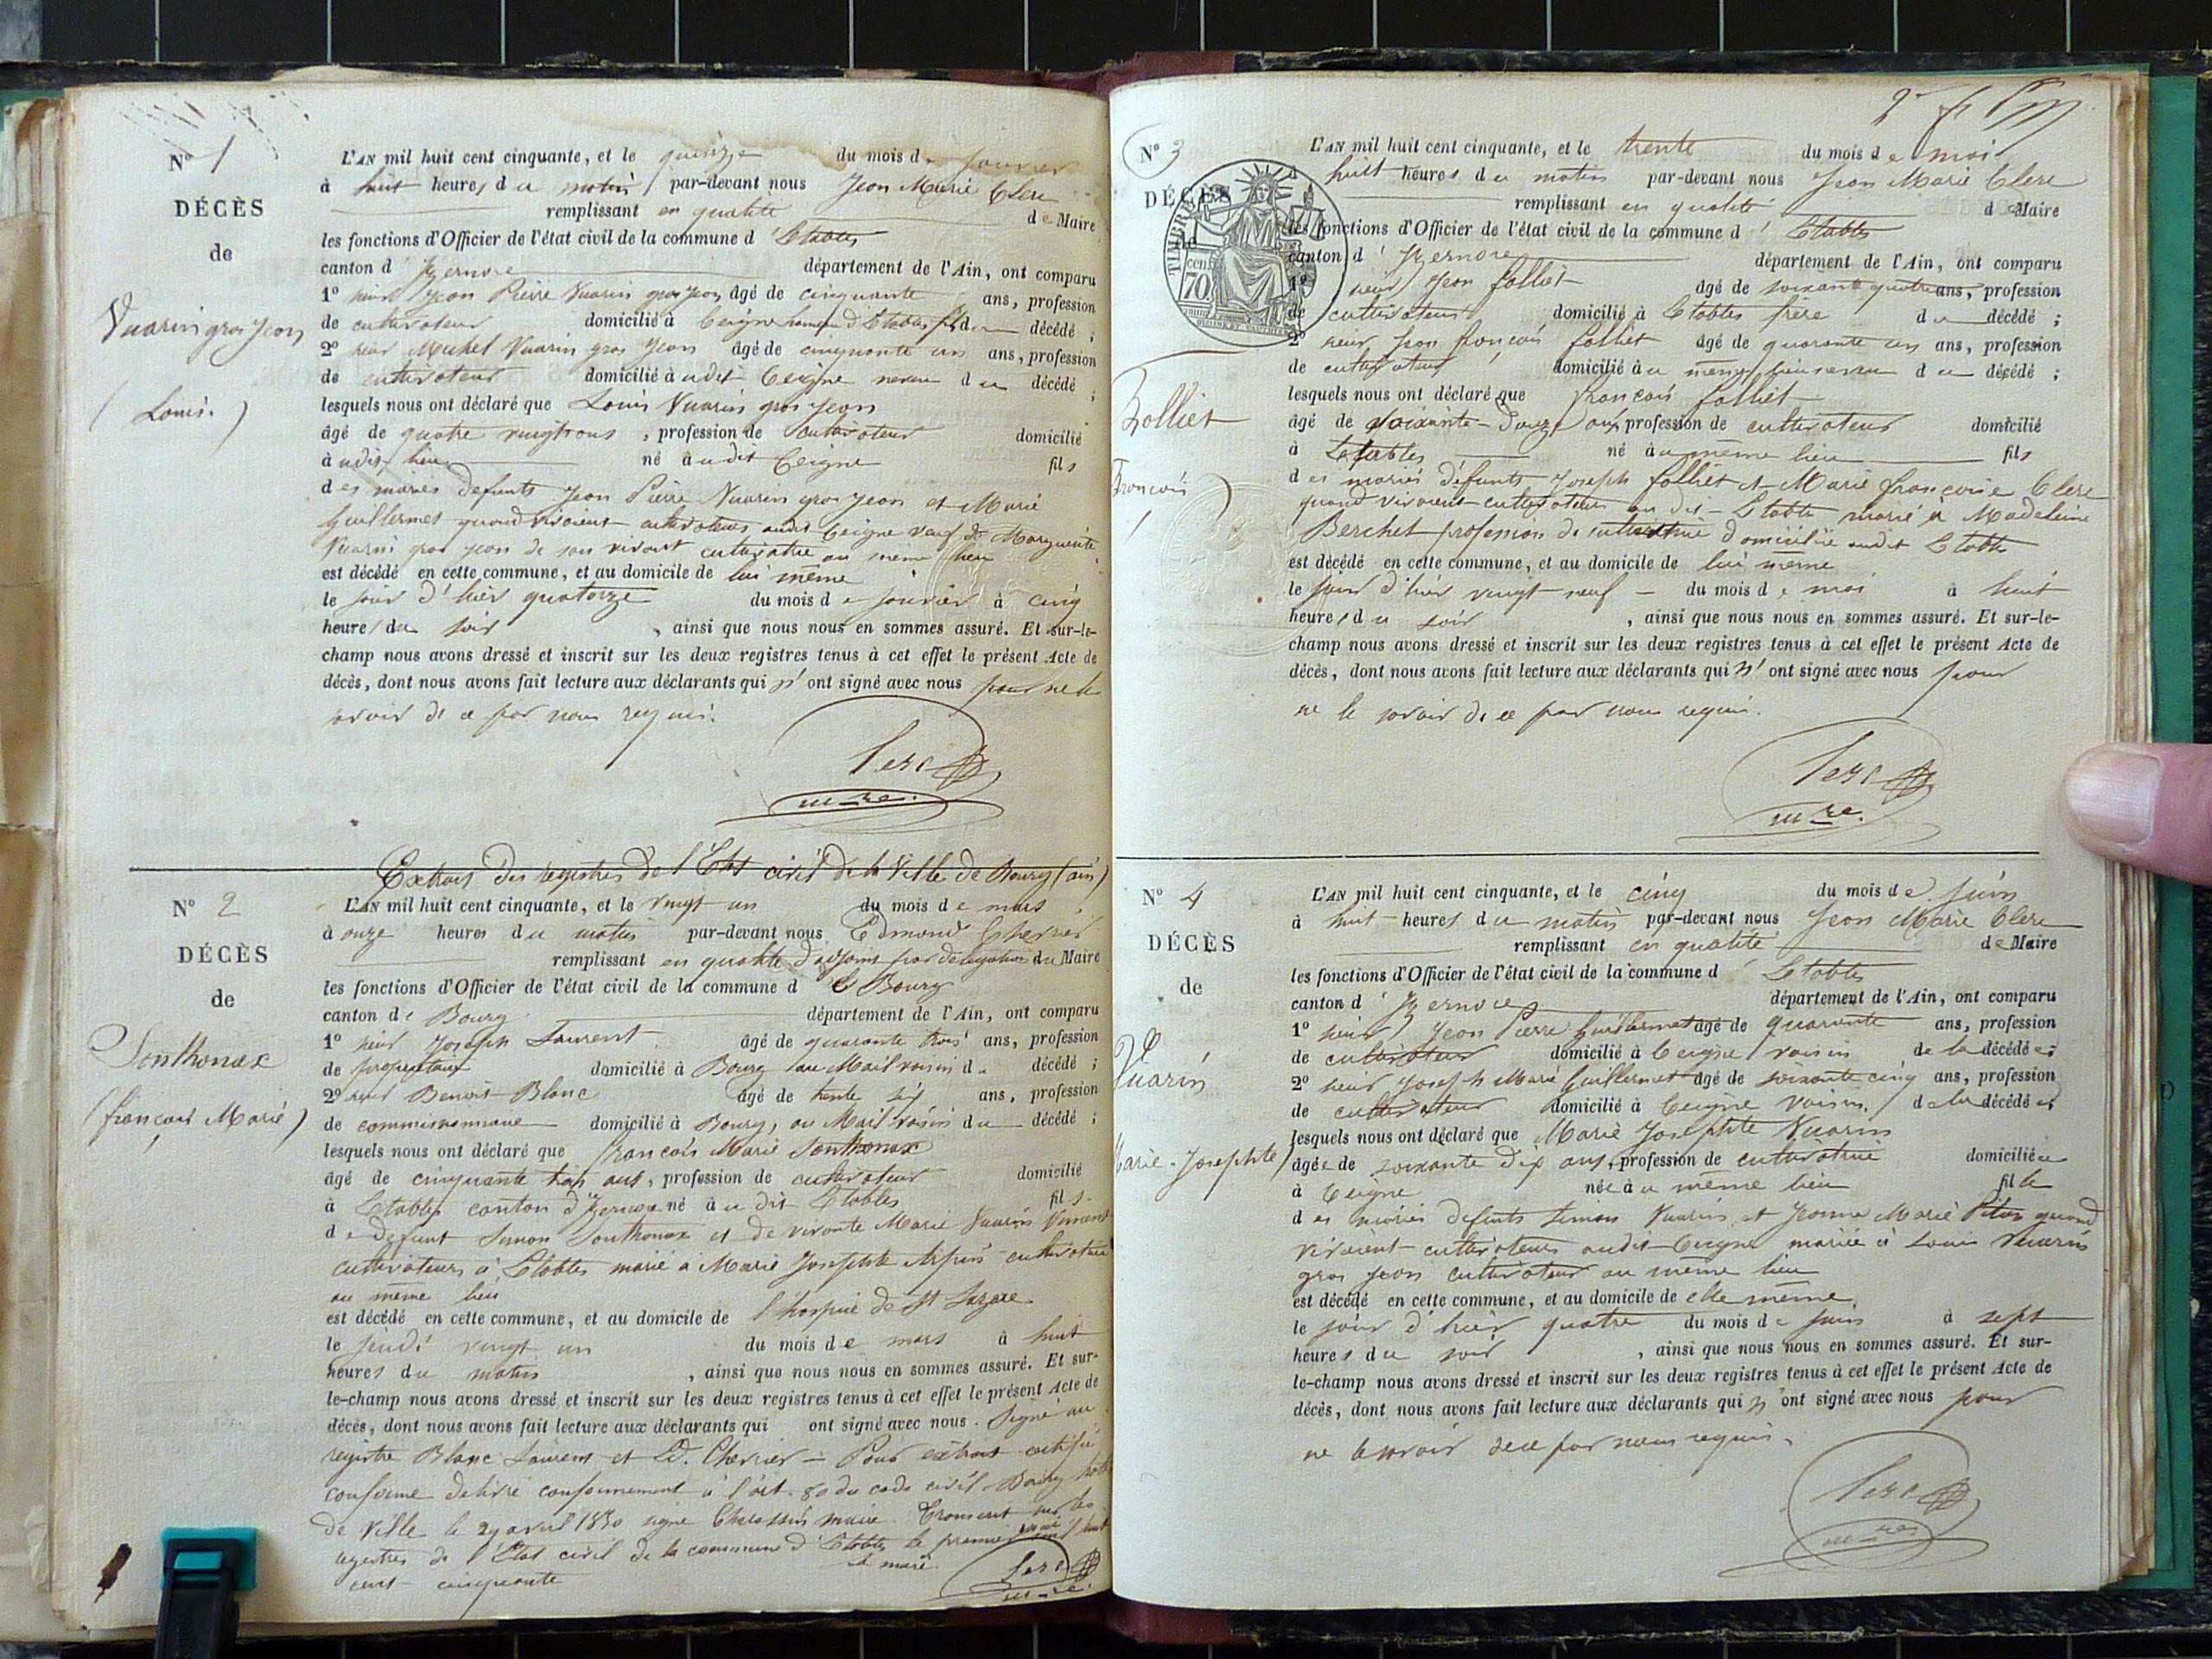 N° 1
DÉCÈS
de
Vuarin gros Jean
( Louis. )
L'AN mil huit cent cinquante, et le quinze du mois de janvier
à huit heures du matin par-devant nous Jean Marie Clerc
remplissant en qualité de Maire
les fonctions d'Officier de l'état civil de la commune d' Etables
canton d' Izernore département de l'Ain, ont comparu
1° sieur Jean Pierre Vuarin gros Jean âgé de cinquante ans, profession
de cultivateur domicilié à Ceigne hameau d'Etables fils du décédé ;
2° sieur Michel Vuarin gros Jean âgé de cinquante un ans, profession
de cultivateur domicilié à udit Ceigne neveu du décédé ;
lesquels nous ont déclaré que Louis Vuarin gros Jean
âgé de quatre vingt ans, profession de cultivateur domicilié
à udit lieu né à udit Ceigne fils
des mariés defunts Jean Pierre Vuarin gros Jean et Marie
Guillermet quand vivoient cultivateurs audit Ceigne veuf de Marguerite
Vuarin gros Jean de son vivant cultivatrice au meme lieu
est décédé en cette commune, et au domicile de lui même
le jour d'hier quatorze du mois de janvier à cinq
heures du soir , ainsi que nous nous en sommes assuré. Et sur-le-
champ nous avons dressé et inscrit sur les deux registres tenus à cet effet le présent Acte de
décès, dont nous avons fait lecture aux déclarants qui n'ont signé avec nous pour ne le
savoir de ce par nous requis.
Clerc
mre.
Extrait des registres de l'Etat civil de la Ville de Bourg (ain)
N° 2
DÉCÈS
de
Sonthonax
(françois Marie)
L'AN mil huit cent cinquante, et le vingt un du mois de mars
à onze heures du matin par-devant nous Edmond Chevrier
remplissant en qualité d'adjoint par délégation du Maire
les fonctions d'Officier de l'état civil de la commune d e Bourg
canton de Bourg département de l'Ain, ont comparu
1° sieur Joseph Laurent âgé de quarante trois ans, profession
de propriétaire domicilié à Bourg au Mail voisin du décédé ;
2° sieur Benoit Blanc âgé de trente six ans, profession
de commissionnaire domicilié à Bourg, au Mail voisin du décédé ;
lesquels nous ont déclaré que françois Marie Sonthonax
âgé de cinquante trois ans, profession de cultivateur domicilié
à Etables canton d'Izernore né à u dit Etables fils
de defunt Simon Sonthonax et de vivante Marie Vuarin Vincent
cultivateurs à Etables marié à Marie Josephte Arpin cultivatrice
au meme lieu
est décédé en cette commune, et au domicile de l'hospice de St Lazare
le jeudi vingt un du mois de mars à huit
heures du matin , ainsi que nous nous en sommes assuré. Et sur-
le-champ nous avons dressé et inscrit sur les deux registres tenus à cet effet le présent Acte de
décès, dont nous avons fait lecture aux déclarants qui ont signé avec nous. Signé au
registre Blanc Laurent et Ed. Chevrier – Pour extrait certifié
conforme delivré conformement à l'art. 80 du code civil Bourg hotel
de Ville le 29 avril 1850 signé maire. Transcrit sur les
registres de l'Etat civil de la commune d'Etables le premier mai mil huit
cent cinquante le maire
Clerc
mre.
N° 3
DÉCÈS
TIMBRE
cent
70
folliet
François
L'AN mil huit cent cinquante, et le trente du mois de mai
à huit heures du matin par-devant nous Jean Marie Clerc
remplissant en qualité de Maire
les fonctions d'Officier de l'état civil de la commune d' Etables
canton d' Izernore département de l'Ain, ont comparu
1° sieur Jean folliet âgé de soixante quatre ans, profession
de cultivateur domicilié à Etables frère du décédé ;
2° sieur Jean françois folliet âgé de quarante un ans, profession
de cultivateur domicilié à u même lieu neveu du décédé ;
lesquels nous ont déclaré que françois folliet
âgé de soixante-douze ans, profession de cultivateur domicilié
à Etables né à u même lieu fils
des mariés défunts Joseph folliet et Marie françoise Clerc
quand vivoient cultivateurs au dit Etables marié à Madeleine
Berchet profession de cultivatrice domiciliée audit Etables
est décédé en cette commune, et au domicile de lui même
le jour d'hier vingt neuf du mois de mai à huit
heures du soir , ainsi que nous nous en sommes assuré. Et sur-le-
champ nous avons dressé et inscrit sur les deux registres tenus à cet effet le présent Acte de
décès, dont nous avons fait lecture aux déclarants qui n'ont signé avec nous pour
ne le savoir de ce par nous requis.
Clerc
mre.
N° 4
DÉCÈS
de
Vuarin
Marie-Josephte)
L'AN mil huit cent cinquante, et le cinq du mois de juin
à huit heures du matin par-devant nous Jean Marie Clerc
remplissant en qualité de Maire
les fonctions d'Officier de l'état civil de la commune d' Etables
canton d' Izernore département de l'Ain, ont comparu
1° sieur Jean Pierre Guillermet âgé de quarante ans, profession
de cultivateur domicilié à Ceigne voisin de la décédée ;
2° sieur Joseph Marie Guillermet âgé de soixante cinq ans, profession
de cultivateur domicilié à Ceigne voisin de la décédée ;
lesquels nous ont déclaré que Marie Josephte Vuarin
âgée de soixante dix ans, profession de cultivatrice domiciliée
à Ceigne née à u même lieu fille
des mariés defunts Simon Vuarin et Jeanne Marie Piton quand
vivoient cultivateurs audit Ceigne mariée à Louis Vuarin
gros Jean cultivateur au même lieu
est décédé en cette commune, et au domicile de elle même
le jour d'hier quatre du mois de juin à sept
heures du soir , ainsi que nous nous en sommes assuré. Et sur-
le-champ nous avons dressé et inscrit sur les deux registres tenus à cet effet le présent Acte de
décès, dont nous avons fait lecture aux déclarants qui n'ont signé avec nous pour
ne le savoir de ce par nous requis.
Clerc
mre.